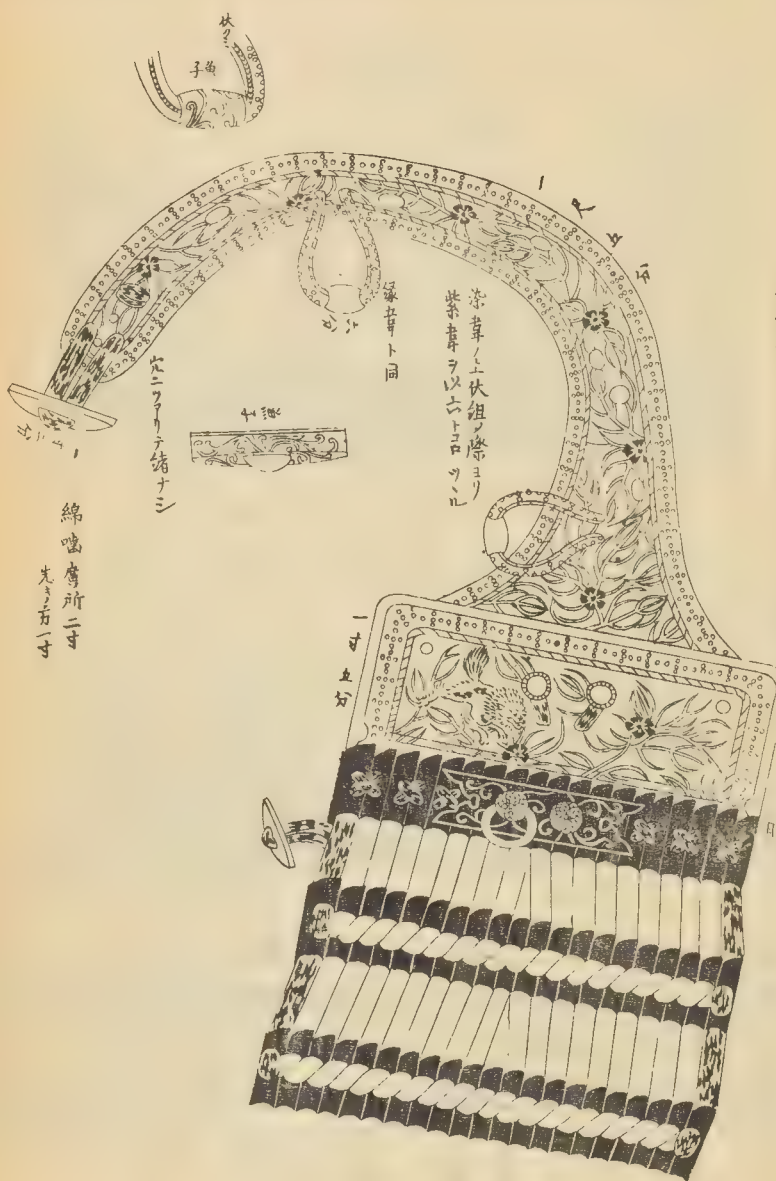 伏クミ
魚子
一尺五分
染韋ノ上伏組ノ際ヨリ
紫韋ヲ以六トコロツヽル
縁韋ト同
穴二ツアリテ緒ナシ
綿噛廣所二寸
先キノ方一寸
一寸五分